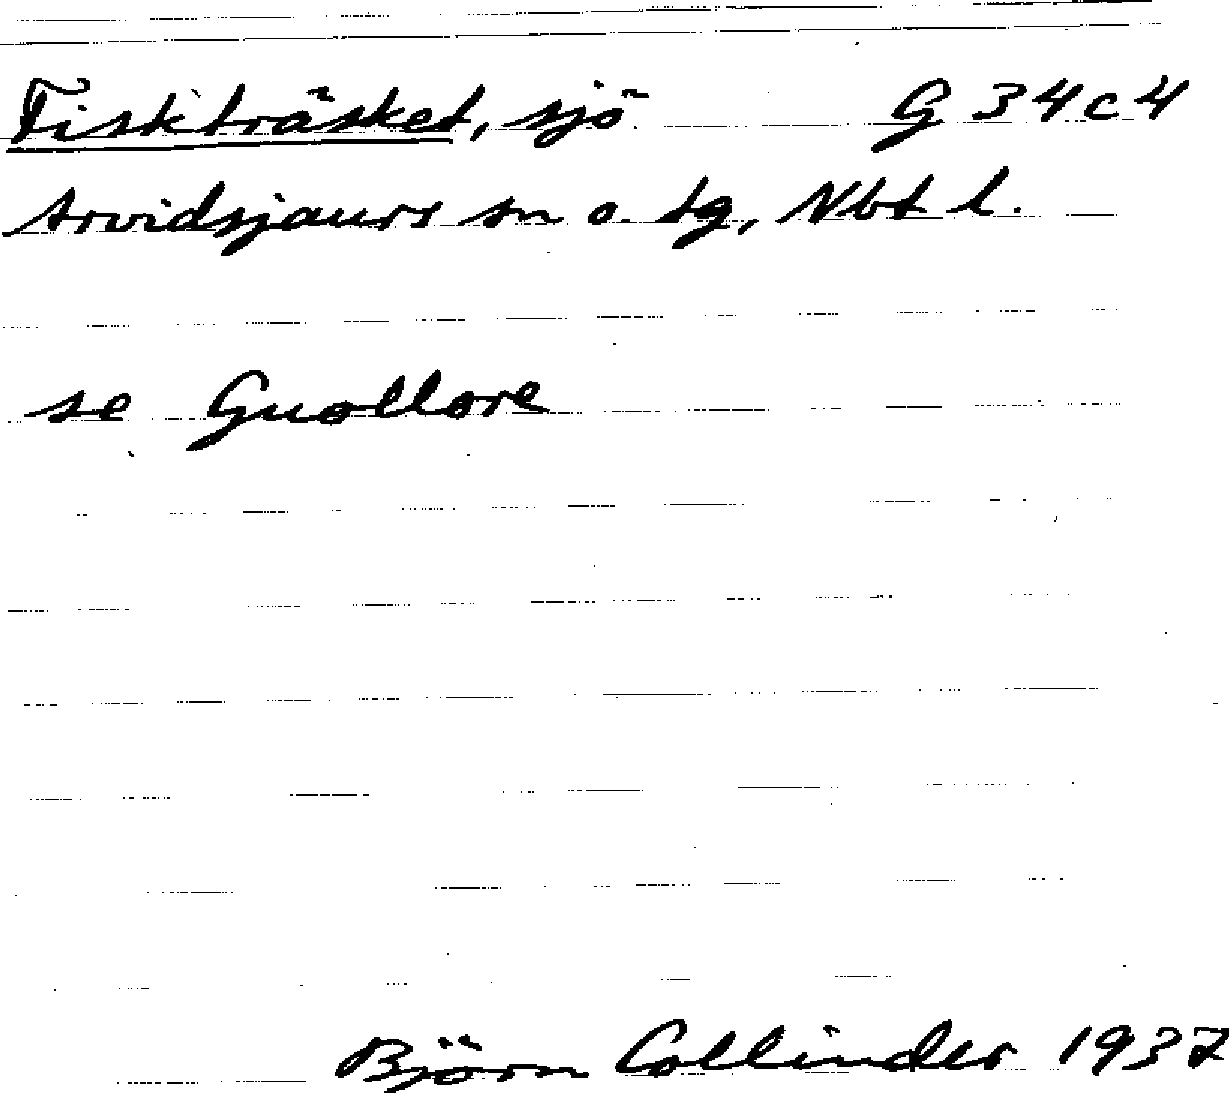 Fiskträsket, sjö G 34 c 4
Arvidsjaurs sn o. tg, Nbt l.
se Guollore
Björn Collinder 1937